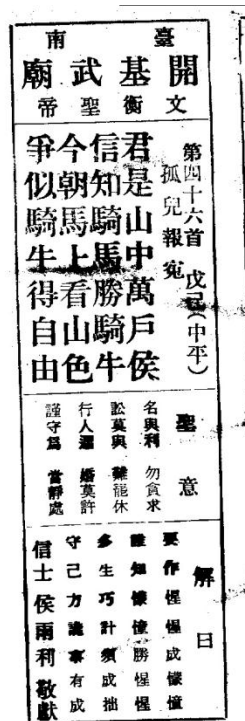 臺南
開基武廟
文衡聖帝
第四十六首 戊己(中平)
孤兒報冤
君是山中萬戶侯
信知騎馬勝騎牛
今朝馬上看山色
爭似騎牛得自由
聖意
名與利 勿貪求
訟莫與 難能休
行人遲 婚莫許
謹守為 當靜處
解曰
要作惺惺成懞憧
誰知懞憧勝惺惺
多生巧計須成拙
守己方事有成
信士侯雨利敬獻